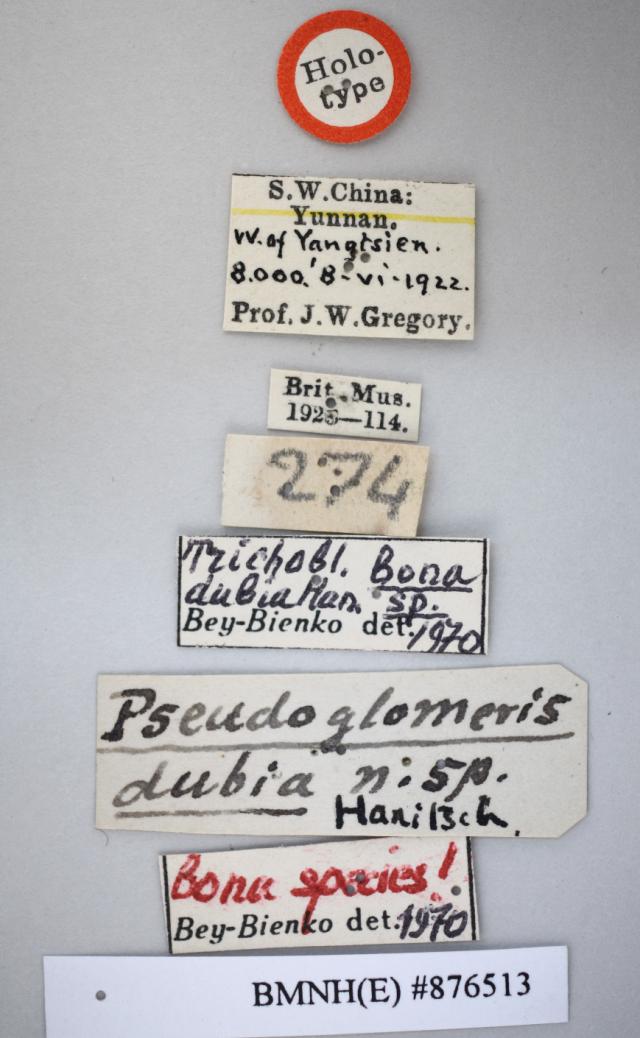 Holo-
type
S.W.China:
Yunnan.
W. of Yangtsien.
8.000.' 8-vi-1922.
Prof. J.W.Gregory.
Brit. Mus.
1925—114.
274
Trichobl. Bona
dubia Han. sp.
Bey-Bienko det. 1970
Pseudoglomeris
dubia n. sp.
Hanitsch.
Bona species!
Bey-Bienko det. 1970
BMNH(E) #876513